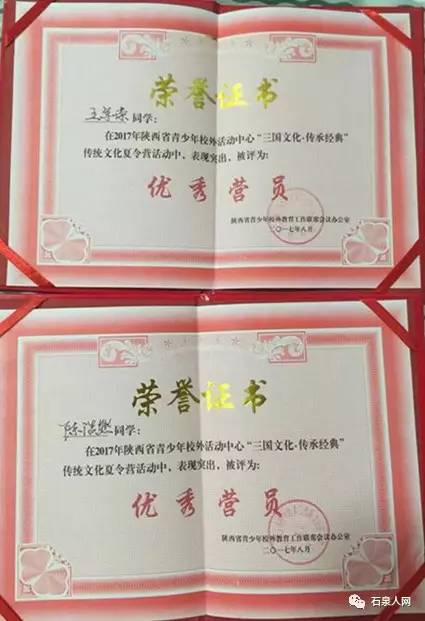 荣誉证书
同学：
在2017年陕西省青少年校外活动中心“三国文化·传承经典”
传统文化夏令营活动中，表现突出，被评为：
优秀营员
陕西省青少年校外教育工作联席会议办公室
二〇一七年八月
荣誉证书
同学：
在2017年陕西省青少年校外活动中心“三国文化·传承经典”
传统文化夏令营活动中，表现突出，被评为：
优秀营员
陕西省青少年校外教育工作联席会议办公室
二〇一七年八月
石泉人网